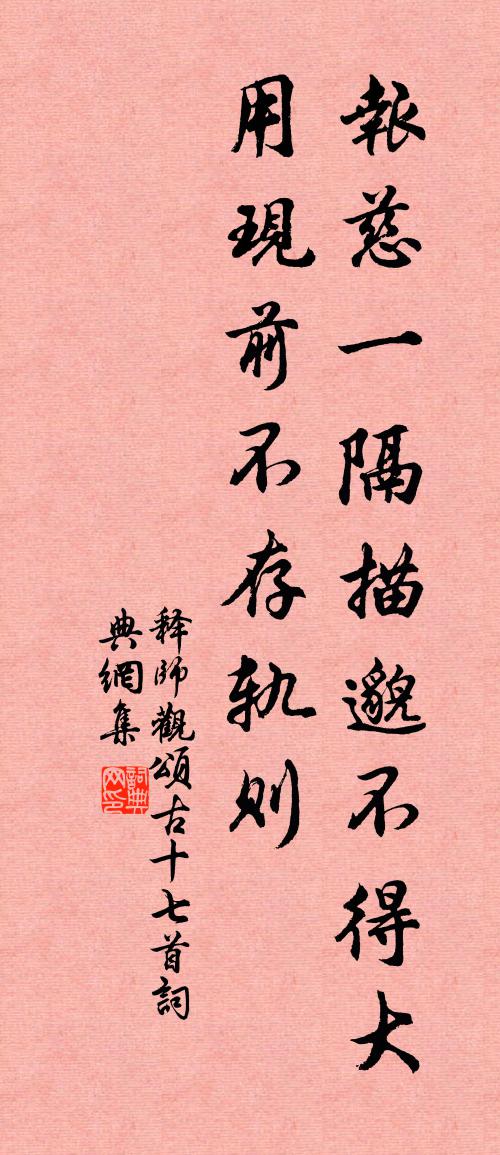 報慈一隔描邈不得大
用現前不存軌則
释師觀頌古十七首詞
典網集
詞典
网印